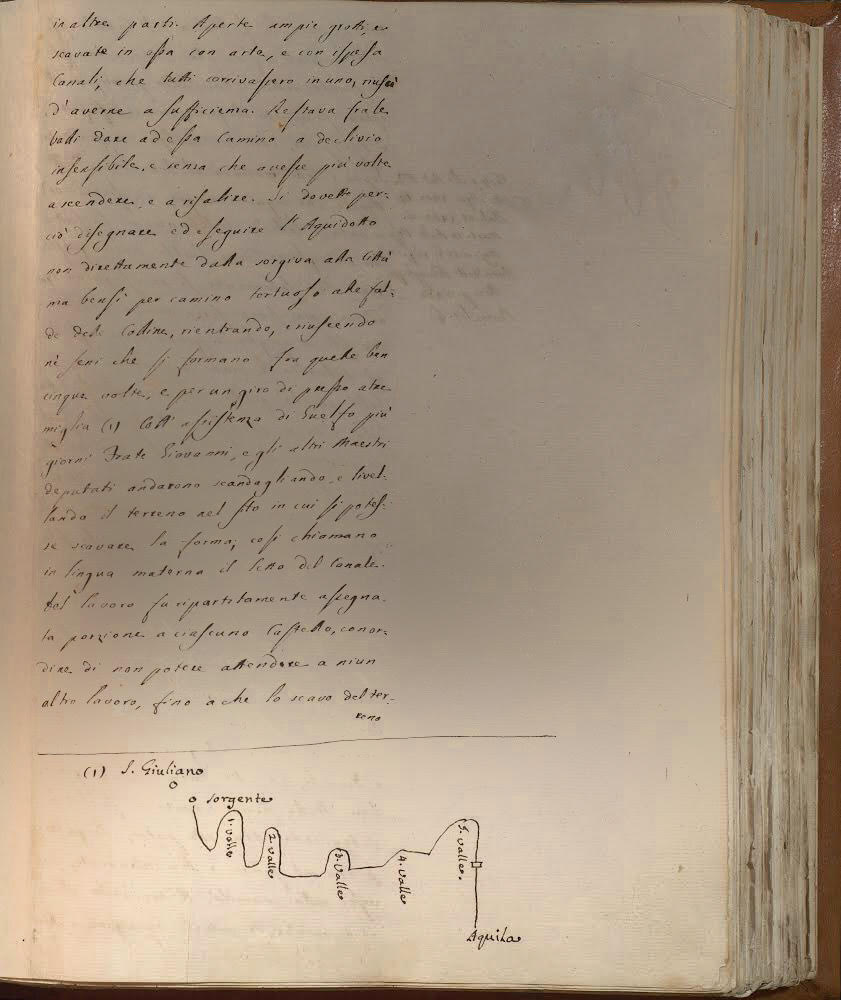 in altre parti. Aperte ampie grotti, e
scavate in essa con arte, e con ispesa
Canali, che tutti corrivassero in uno, riuscì
d'averne a sufficienza. Restava frale
dare ad essa Camino a declivio
insensibile, e senza che avesse più volte
a scendere, e a risalire. Si dovette per-
ciò disegnare ed eseguire l'Aquidotto
non direttamente dalla sorgiva alla Città
ma bensì per camino tortuoso alle fal-
de delle Colline, rientrando, e uscendo
nè seni che si formano fra quelle ben
cinque volte, e per un giro di presso a tre
miglia (1) Coll' assistenza di Guelfo più
giorni Frate Giovanni, e gli altri Maestri
deputati andarono scandagliando, e livel-
lando il terreno nel sito in cui si potes-
se scavare la forma; così chiamano
in lingua materna il letto del Canale.
Tal lavoro fu ripartitamente assegna-
ta porzione a ciascuno Castello, con or-
dine di non potere attendere a niun
altro lavoro, fino a che lo scavo del ter-
reno
(1) S. Giuliano
sorgente
1. Valle
2. Valle
3. Valle
4. Valle
5. Valle.
Aquila